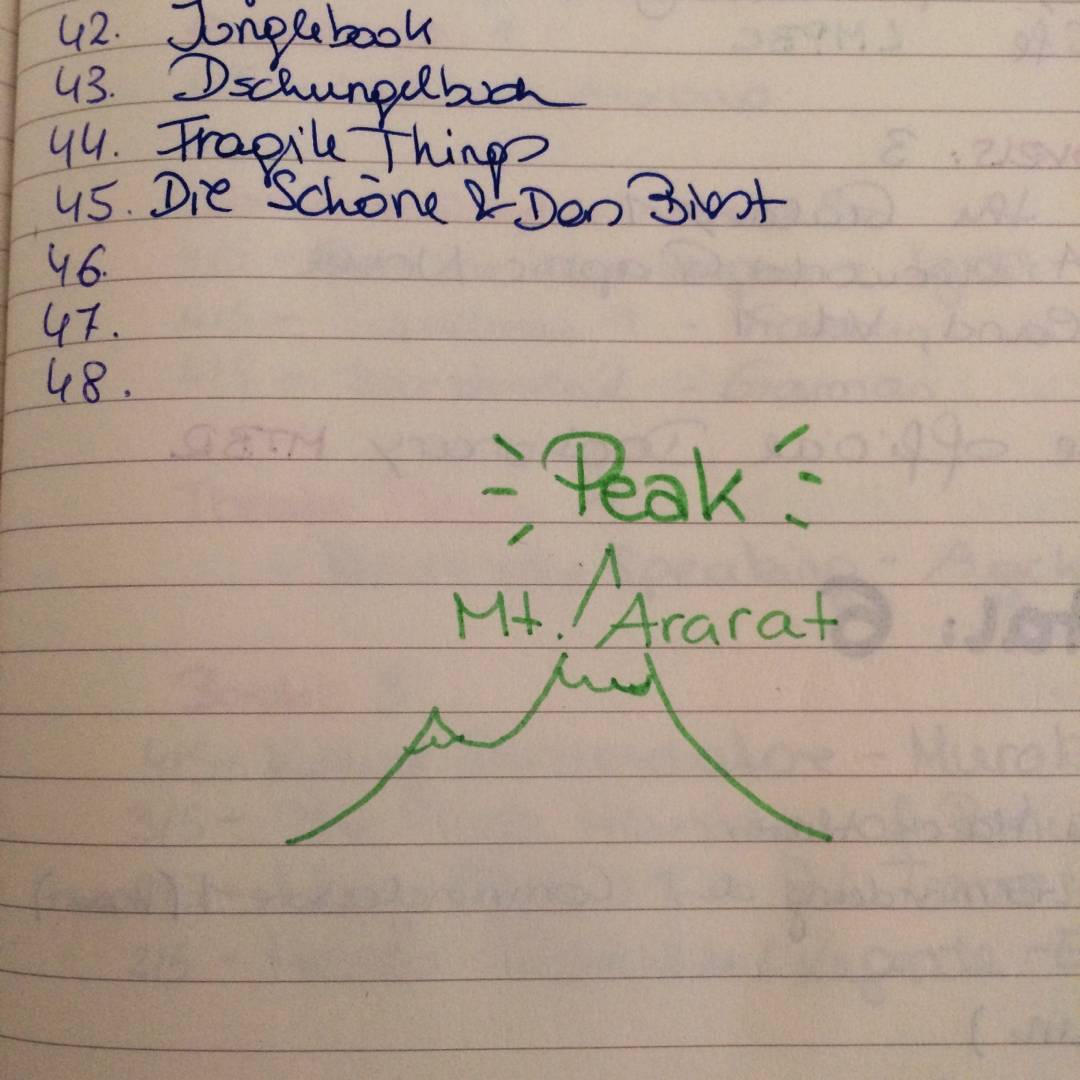 42. Junglebook
43. Dschungelbuch
44. Fragile Things
45. Die Schöne & Das Biest
46.
47.
48.
Peak
Mt. Ararat